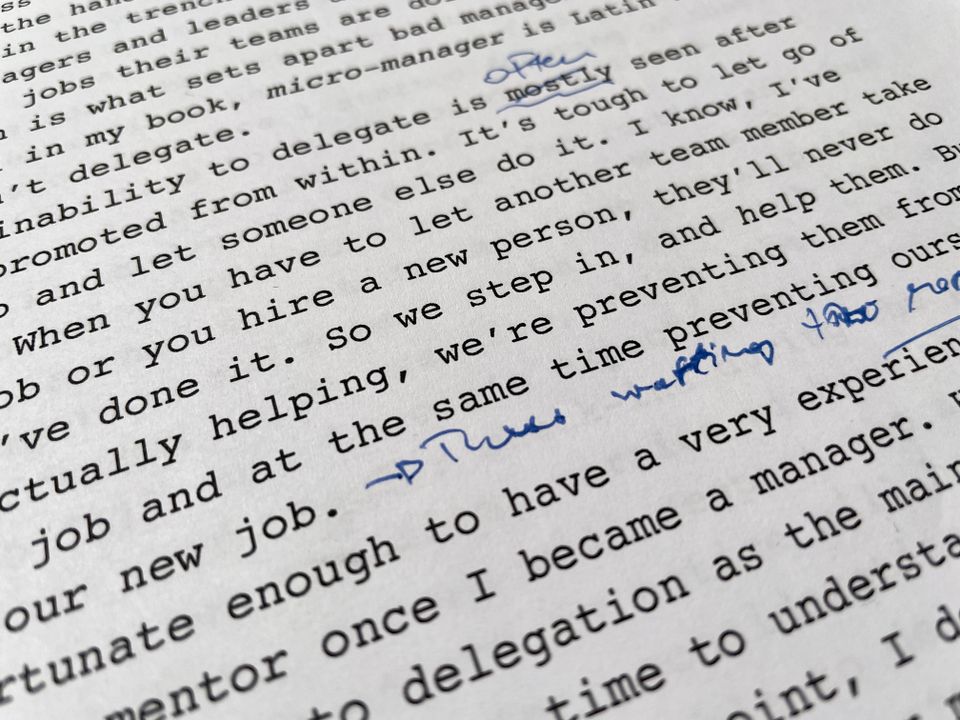 the
in the trenc
agers and leaders
jobs their teams are do
is what sets apart bad manage
in my book, micro-manager is Latin
't delegate.
often
inability to delegate is mostly seen after
promoted from within. It's tough to let go of
and let someone else do it. I know, I've
When you have to let another team member take
ob or you hire a new person, they'll never do
've done it. So we step in, and help them. Bu
ctually helping, we're preventing them from
job and at the same time preventing ours
our new job.
rtunate enough to have a very experien
mentor once I became a manager.
to delegation as the main
time to understa
oint, I d